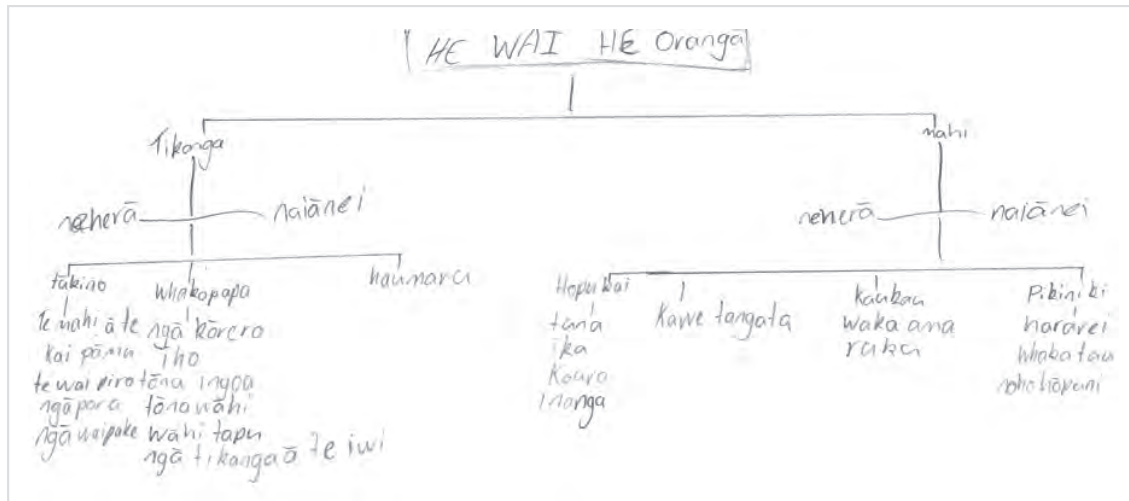 HE WAI HE Oranga
Tikanga
mahi
neherā
naiānei
neherā
naiānei
tūkino
Te mahi ā te
kai pāmu
te wai piro
ngā para
ngā waipuke
whakapapa
ngā kōrero
iho
tōna ingoa
tōna wāhi
wāhi tapu
ngā tikanga ā te iwi
haumaru
Hopu kai
tuna
ika
Koura
Inanga
Kawe tangata
Kaukau
waka ama
ruku
Pikiniki
harārei
whakatau
noho hōpuni